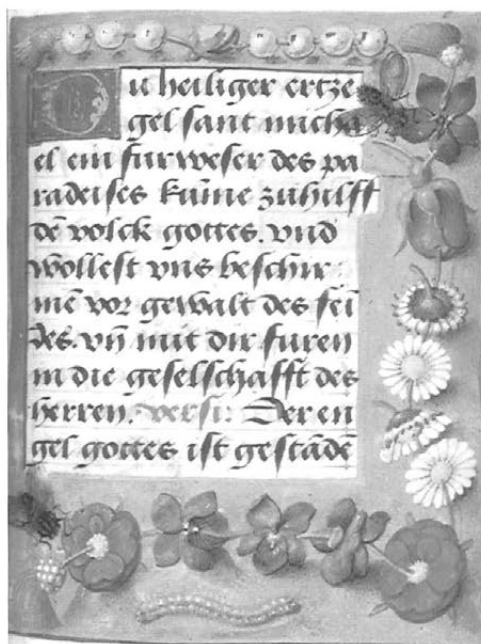 Du heiliger ertze
gel sant micha
el ein furweser des pa
radeises kume zuhilff
dē volck gottes. vnd
wollest vns beschir
mē vor gewalt des fei
des. vn̄ mit dir furen
in die geselschafft des
herren. versi: Der en
gel gottes ist gestādē